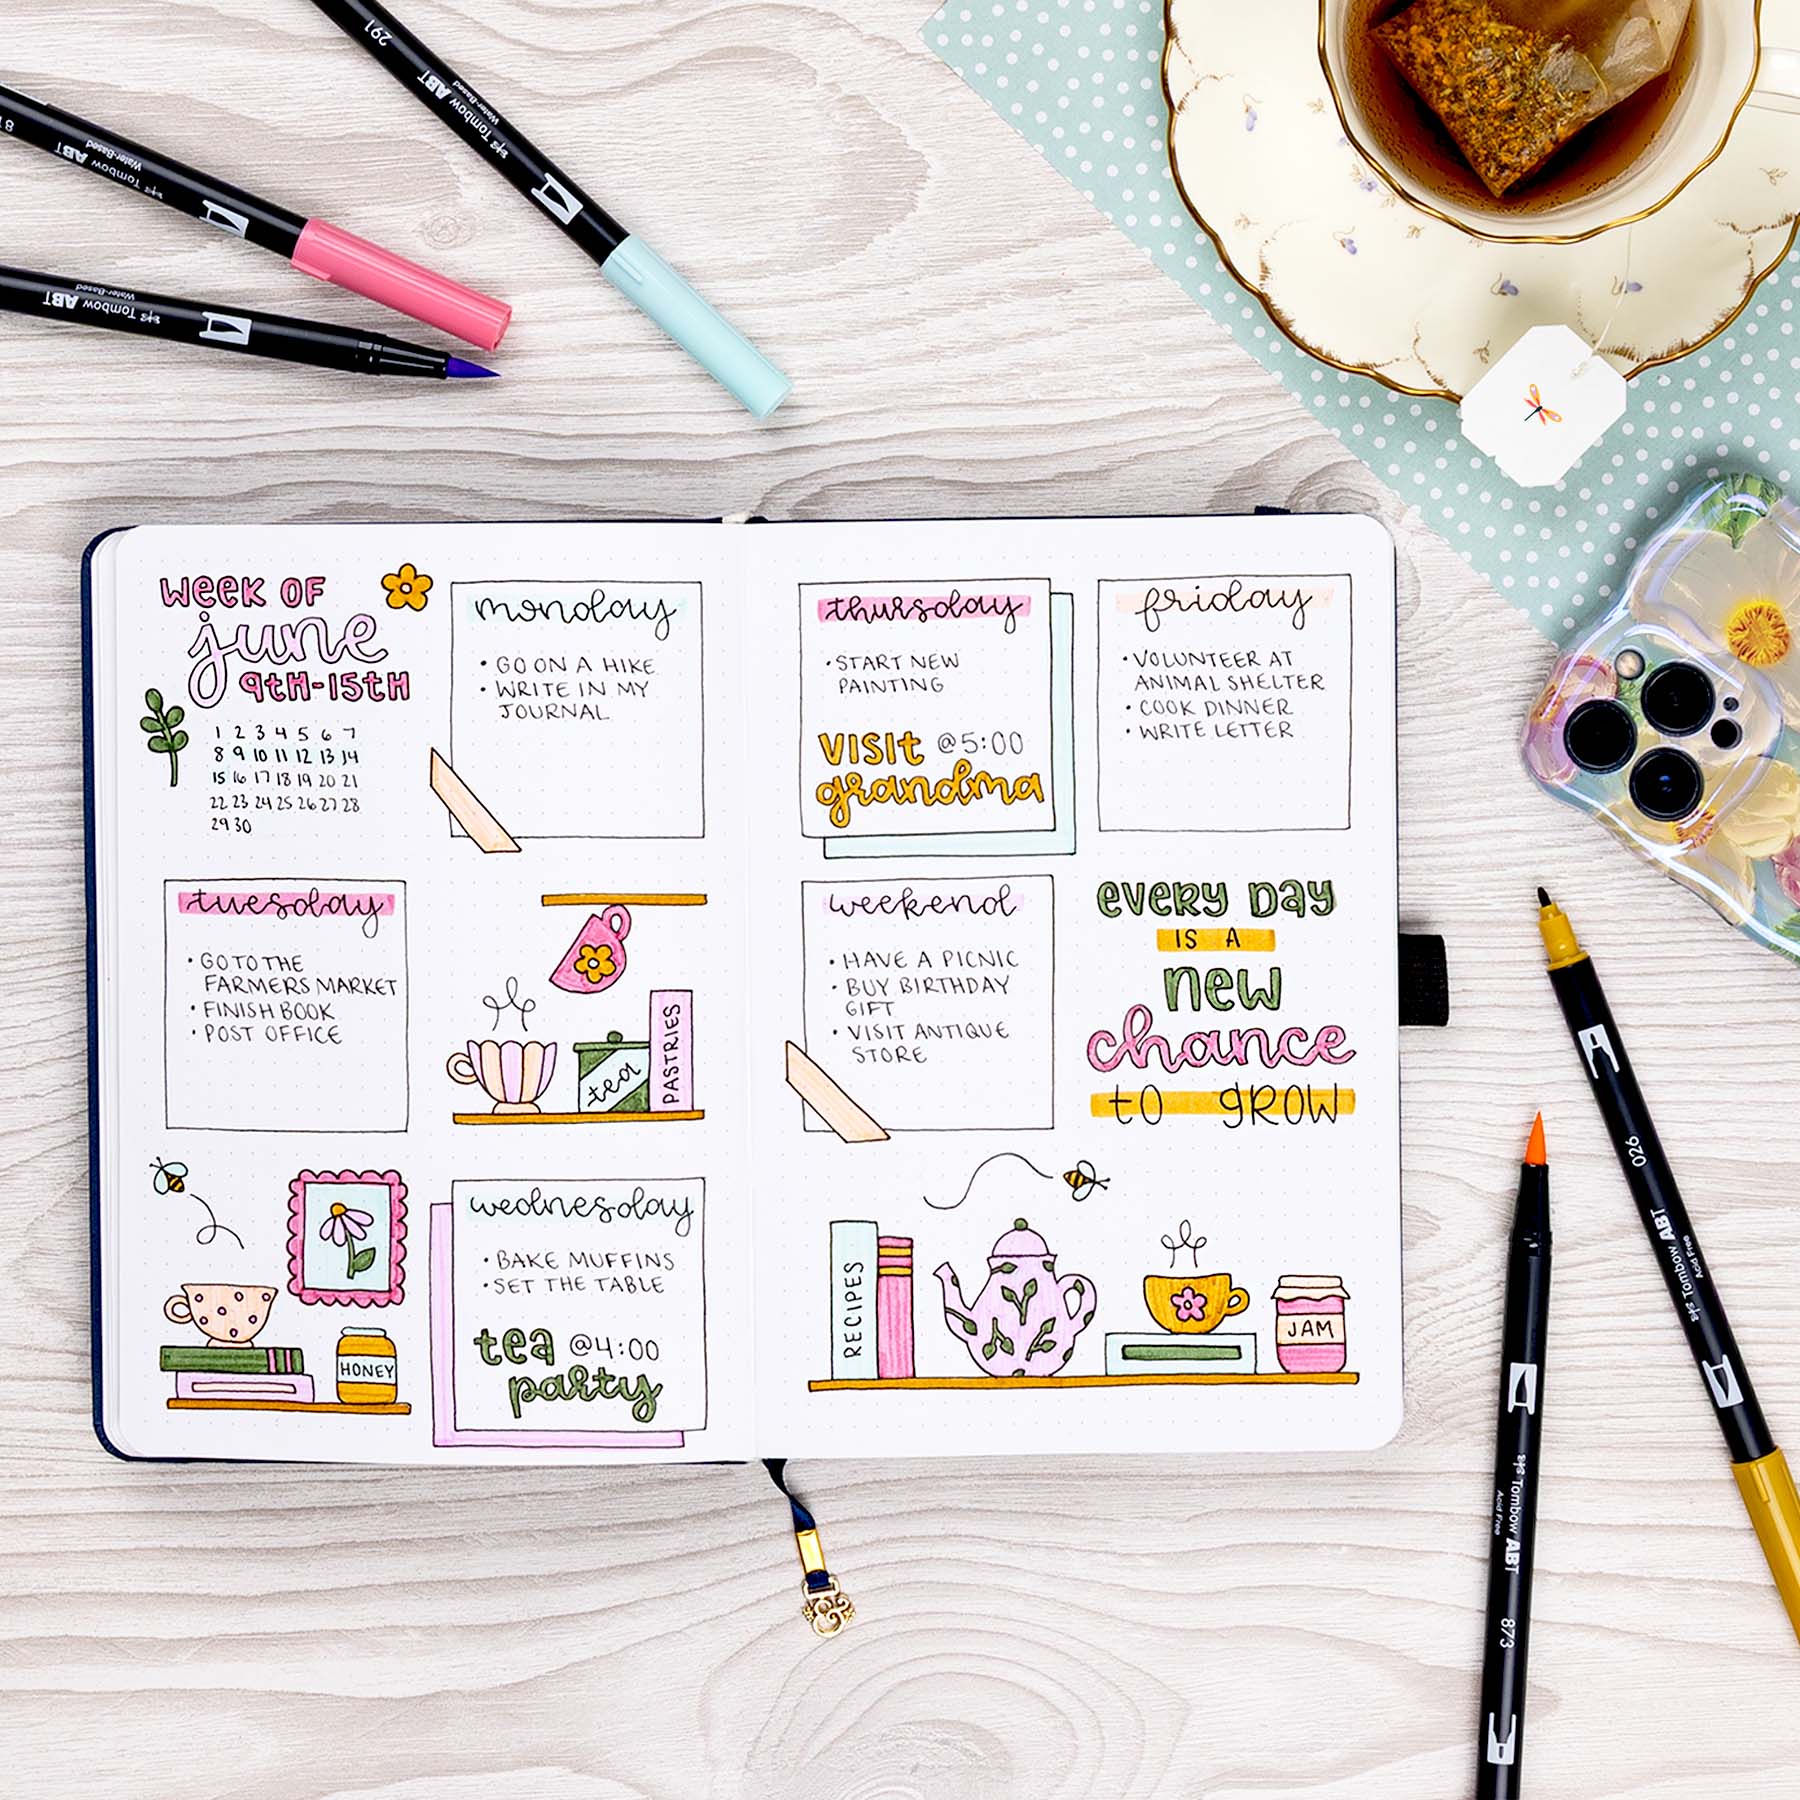 291
Tombow ABT
Water-Based
Tombow ABT
Water-Based
Tombow ABT
Water-Based
WEEK OF
june
9TH-15TH
1 2 3 4 5 6 7
8 9 10 11 12 13 14
15 16 17 18 19 20 21
22 23 24 25 26 27 28
29 30
monday
• GO ON A HIKE
• WRITE IN MY
JOURNAL
tuesday
• GO TO THE
FARMERS MARKET
• FINISH BOOK
• POST OFFICE
tea
PASTRIES
HONEY
wednesday
• BAKE MUFFINS
• SET THE TABLE
tea @4:00
party
thursday
• START NEW
PAINTING
VISIt @5:00
grandma
friday
• VOLUNTEER AT
ANIMAL SHELTER
• COOK DINNER
• WRITE LETTER
weekend
• HAVE A PICNIC
• BUY BIRTHDAY
GIFT
• VISIT ANTIQUE
STORE
every Day
IS A
new
chance
to gROW
RECIPES
JAM
026
Tombow ABT
Acid Free
Tombow ABT
Acid Free
873